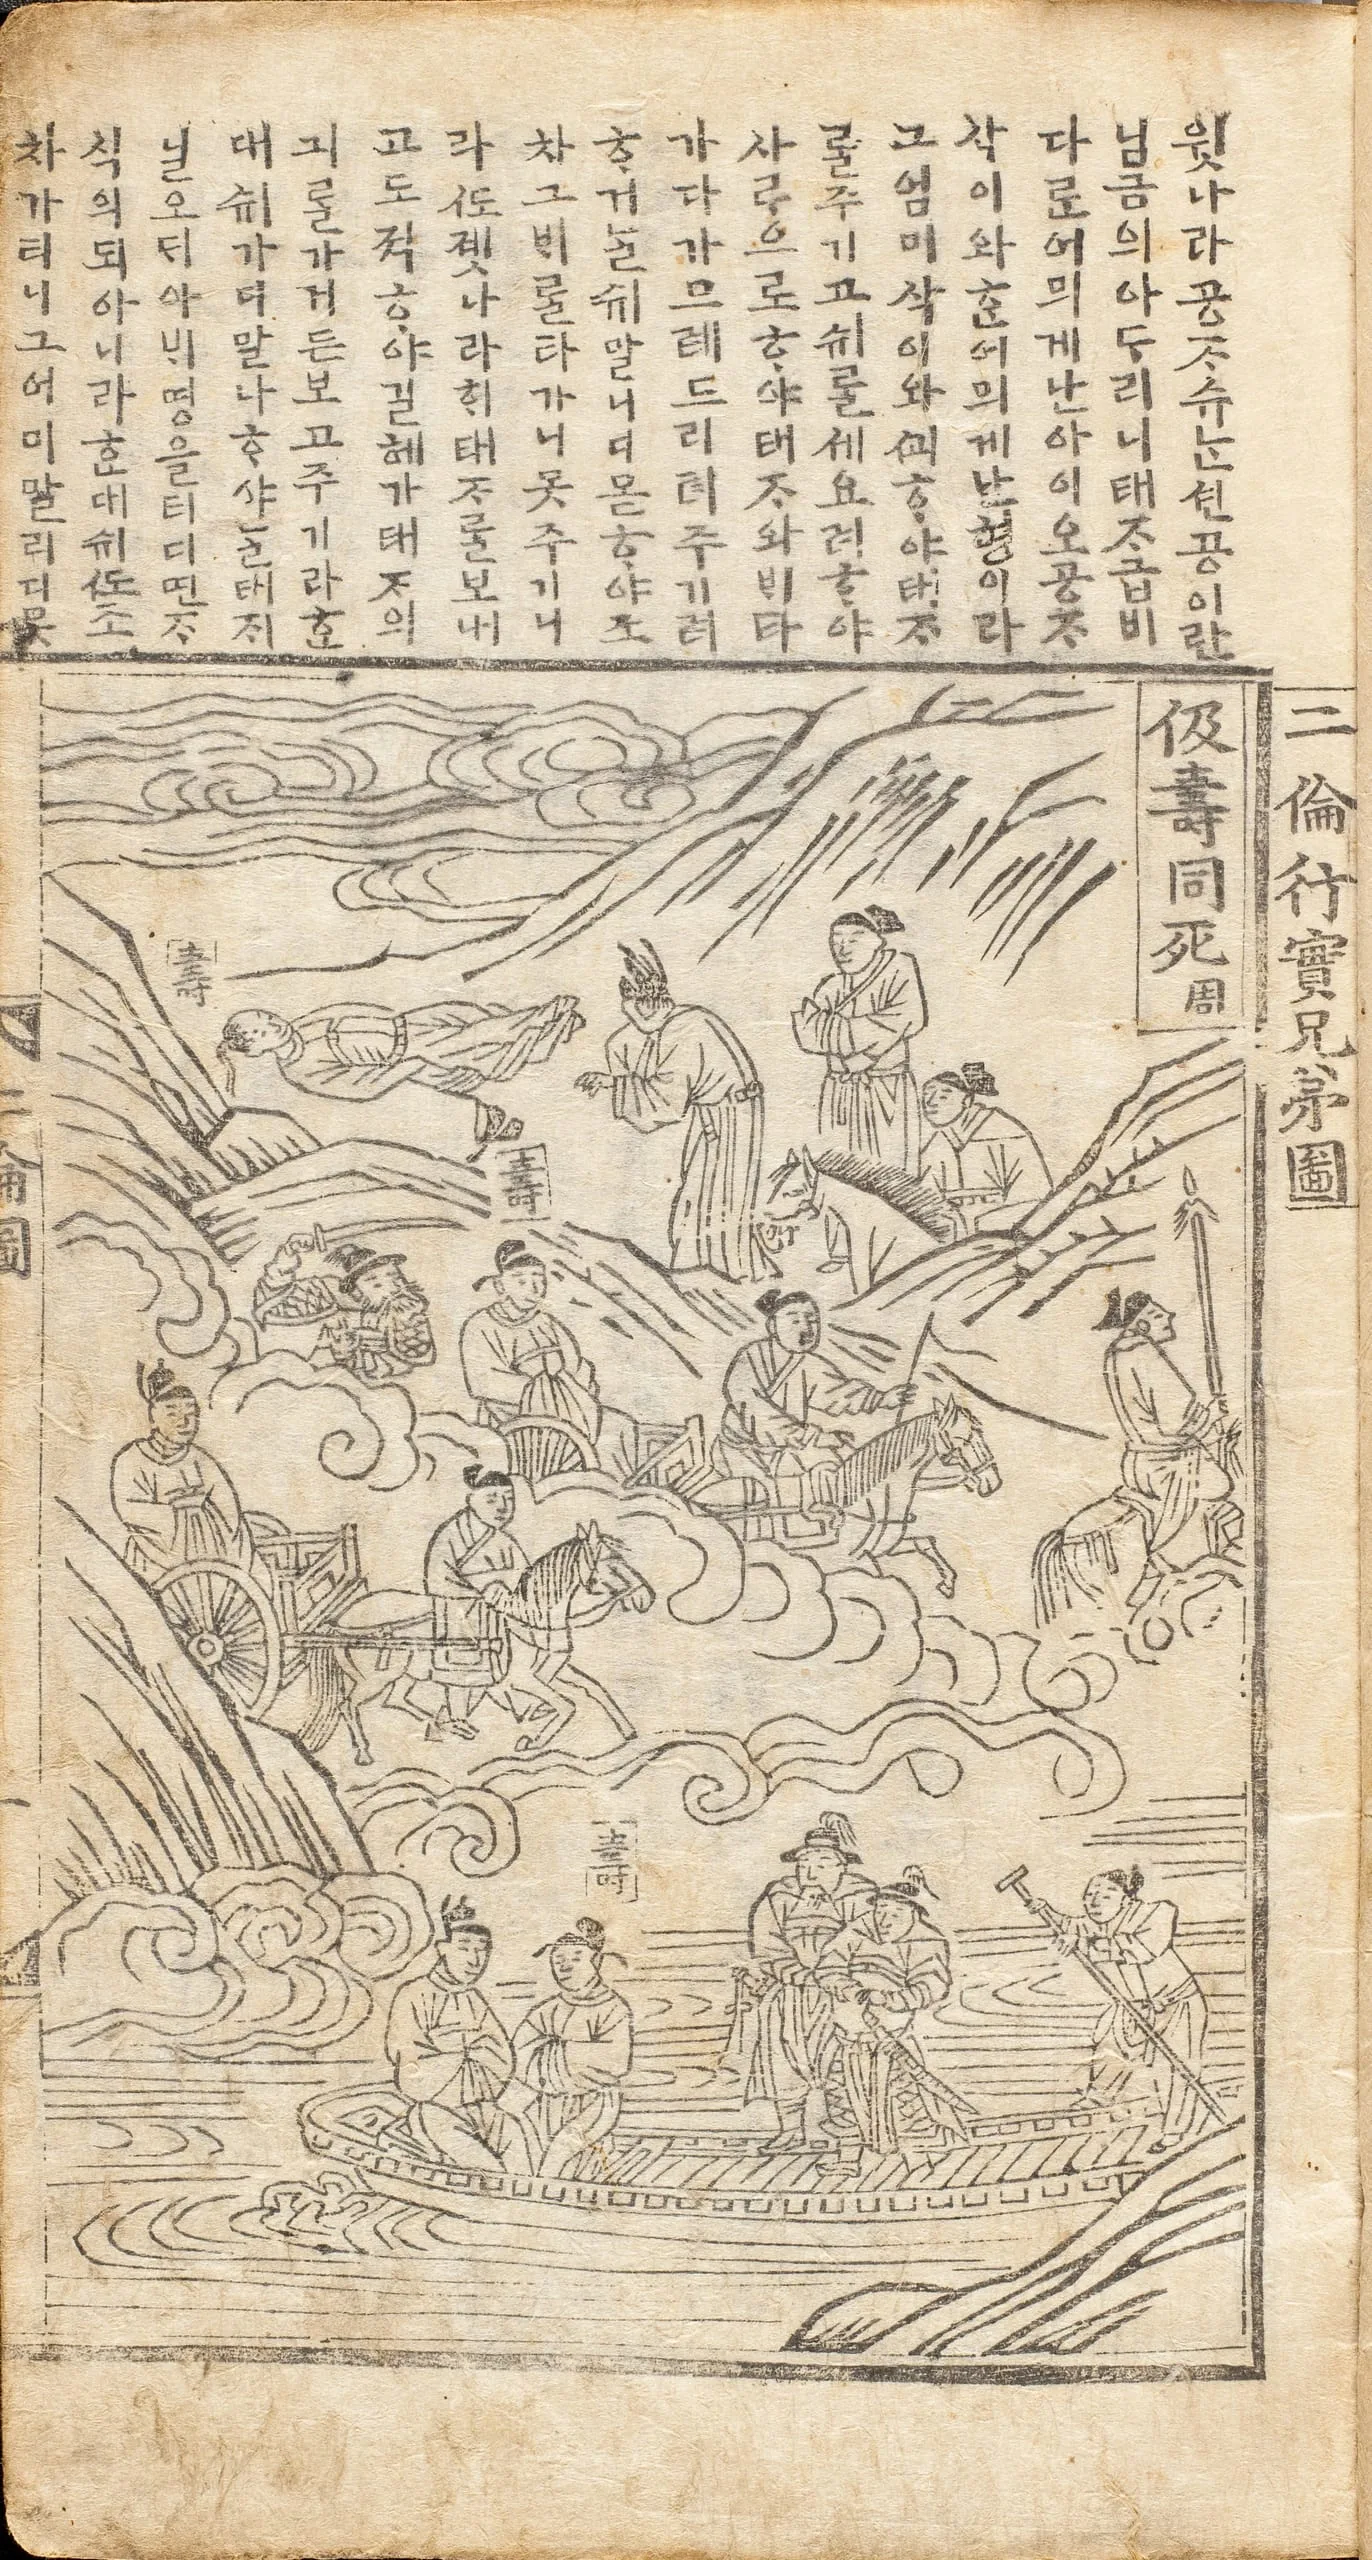 윗나라공ᄌᆞ슈ᄂᆞᆫ션공이란
님금의아ᄃᆞ리니태ᄌᆞ급비
다ᄅᆞᆫ어믜게난아이오공ᄌᆞ
삭이와ᄒᆞᆫ어믜게난형이라
그엄미삭이와ᄭᅬᄒᆞ야태ᄌᆞ
ᄅᆞᆯ주기고쉬ᄅᆞᆯ셰요려ᄒᆞ야
사ᄅᆞ으로ᄒᆞ야태ᄌᆞ와비타
가다가므레드리텨주기려
ᄒᆞ거ᄂᆞᆯ쉬말니디몯ᄒᆞ야조
차그ᄇᆡᄅᆞᆯ타가니못주기니
라ᄯᅩ졧나라ᄒᆡ태ᄌᆞᄅᆞᆯ보내
고도적ᄒᆞ야길헤가태ᄌᆞ의
긔ᄅᆞᆯ가거든보고주기라ᄒᆞᆫ
대쉬가디말나ᄒᆞ야ᄂᆞᆯ태ᄌᆡ
닐오ᄃᆡ아븨명을티디면ᄌᆞ
식의되아니라ᄒᆞᆫ대쉬ᄯᅩ조
차가티니그어미말리디못
二倫行實兄弟圖
伋壽同死 周
壽
壽
壽
二倫圖
一